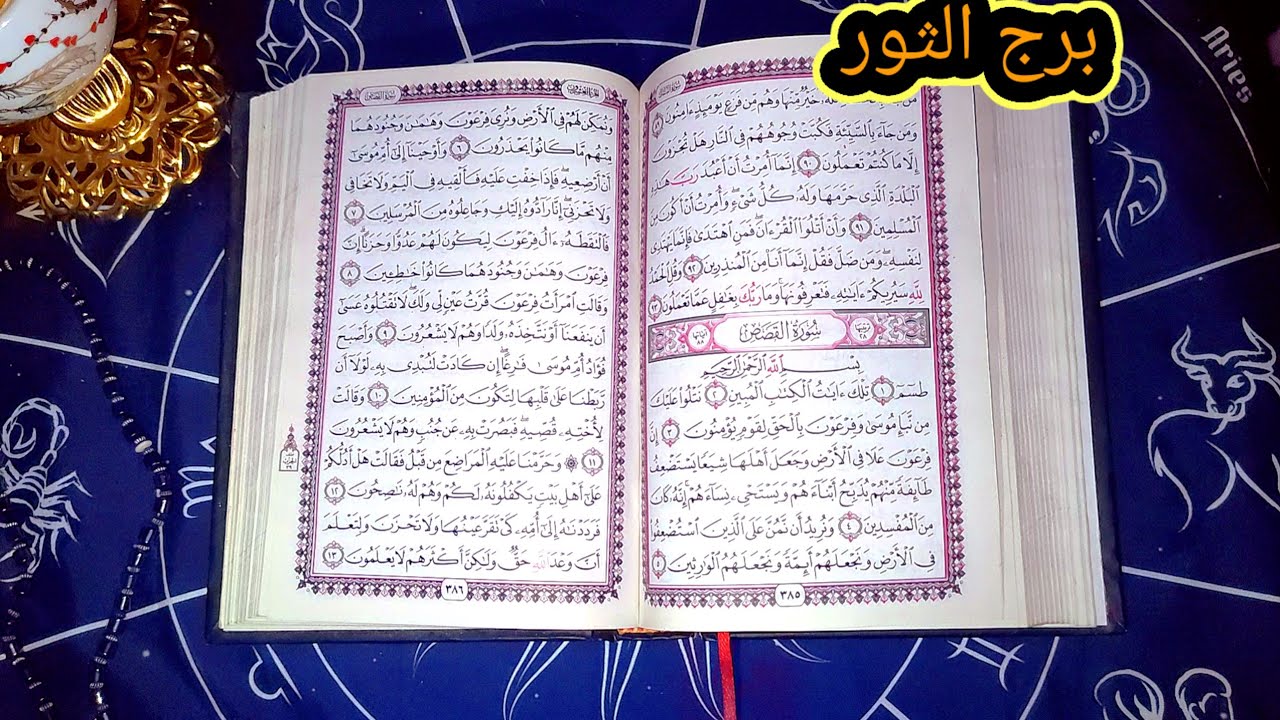 برج الثور
Aries
وَمَن جَآءَ بِٱلسَّيِّئَةِ فَكُبَّتْ وُجُوهُهُمْ فِى ٱلنَّارِ هَلْ تُجْزَوْنَ
إِلَّا مَا كُنتُمْ تَعْمَلُونَ ٩٠ إِنَّمَآ أُمِرْتُ أَنْ أَعْبُدَ رَبَّ هَٰذِهِ
ٱلْبَلْدَةِ ٱلَّذِى حَرَّمَهَا وَلَهُۥ كُلُّ شَىْءٍ وَأُمِرْتُ أَنْ أَكُونَ مِنَ
ٱلْمُسْلِمِينَ ٩١ وَأَنْ أَتْلُوَا۟ ٱلْقُرْءَانَ فَمَنِ ٱهْتَدَىٰ فَإِنَّمَا يَهْتَدِى
لِنَفْسِهِۦ وَمَن ضَلَّ فَقُلْ إِنَّمَآ أَنَا۠ مِنَ ٱلْمُنذِرِينَ ٩٢ وَقُلِ ٱلْحَمْدُ
لِلَّهِ سَيُرِيكُمْ ءَايَٰتِهِۦ فَتَعْرِفُونَهَا وَمَا رَبُّكَ بِغَٰفِلٍ عَمَّا تَعْمَلُونَ ٩٣
سُورَةُ القَصَصِ
بِسْمِ ٱللَّهِ ٱلرَّحْمَٰنِ ٱلرَّحِيمِ
طسٓمٓ ١ تِلْكَ ءَايَٰتُ ٱلْكِتَٰبِ ٱلْمُبِينِ ٢ نَتْلُوا۟ عَلَيْكَ
مِن نَّبَإِ مُوسَىٰ وَفِرْعَوْنَ بِٱلْحَقِّ لِقَوْمٍ يُؤْمِنُونَ ٣ إِنَّ
فِرْعَوْنَ عَلَا فِى ٱلْأَرْضِ وَجَعَلَ أَهْلَهَا شِيَعًا يَسْتَضْعِفُ
طَآئِفَةً مِّنْهُمْ يُذَبِّحُ أَبْنَآءَهُمْ وَيَسْتَحْىِۦ نِسَآءَهُمْ إِنَّهُۥ كَانَ
مِنَ ٱلْمُفْسِدِينَ ٤ وَنُرِيدُ أَن نَّمُنَّ عَلَى ٱلَّذِينَ ٱسْتُضْعِفُوا۟
فِى ٱلْأَرْضِ وَنَجْعَلَهُمْ أَئِمَّةً وَنَجْعَلَهُمُ ٱلْوَٰرِثِينَ ٥
٣٨٥
وَنُمَكِّنَ لَهُمْ فِى ٱلْأَرْضِ وَنُرِىَ فِرْعَوْنَ وَهَٰمَٰنَ وَجُنُودَهُمَا
مِنْهُم مَّا كَانُوا۟ يَحْذَرُونَ ٦ وَأَوْحَيْنَآ إِلَىٰٓ أُمِّ مُوسَىٰٓ
أَنْ أَرْضِعِيهِ فَإِذَا خِفْتِ عَلَيْهِ فَأَلْقِيهِ فِى ٱلْيَمِّ وَلَا تَخَافِى
وَلَا تَحْزَنِىٓ إِنَّا رَآدُّوهُ إِلَيْكِ وَجَاعِلُوهُ مِنَ ٱلْمُرْسَلِينَ ٧
فَٱلْتَقَطَهُۥٓ ءَالُ فِرْعَوْنَ لِيَكُونَ لَهُمْ عَدُوًّا وَحَزَنًا إِنَّ
فِرْعَوْنَ وَهَٰمَٰنَ وَجُنُودَهُمَا كَانُوا۟ خَٰطِـِٔينَ ٨
وَقَالَتِ ٱمْرَأَتُ فِرْعَوْنَ قُرَّتُ عَيْنٍ لِّى وَلَكَ لَا تَقْتُلُوهُ عَسَىٰٓ
أَن يَنفَعَنَآ أَوْ نَتَّخِذَهُۥ وَلَدًا وَهُمْ لَا يَشْعُرُونَ ٩ وَأَصْبَحَ
فُؤَادُ أُمِّ مُوسَىٰ فَٰرِغًا إِن كَادَتْ لَتُبْدِى بِهِۦ لَوْلَآ أَن
رَّبَطْنَا عَلَىٰ قَلْبِهَا لِتَكُونَ مِنَ ٱلْمُؤْمِنِينَ ١٠ وَقَالَتْ
لِأُخْتِهِۦ قُصِّيهِ فَبَصُرَتْ بِهِۦ عَن جُنُبٍ وَهُمْ لَا يَشْعُرُونَ
١١ ۞ وَحَرَّمْنَا عَلَيْهِ ٱلْمَرَاضِعَ مِن قَبْلُ فَقَالَتْ هَلْ أَدُلُّكُمْ
عَلَىٰٓ أَهْلِ بَيْتٍ يَكْفُلُونَهُۥ لَكُمْ وَهُمْ لَهُۥ نَٰصِحُونَ ١٢
فَرَدَدْنَٰهُ إِلَىٰٓ أُمِّهِۦ كَىْ تَقَرَّ عَيْنُهَا وَلَا تَحْزَنَ وَلِتَعْلَمَ
أَنَّ وَعْدَ ٱللَّهِ حَقٌّ وَلَٰكِنَّ أَكْثَرَهُمْ لَا يَعْلَمُونَ ١٣
٣٨٦